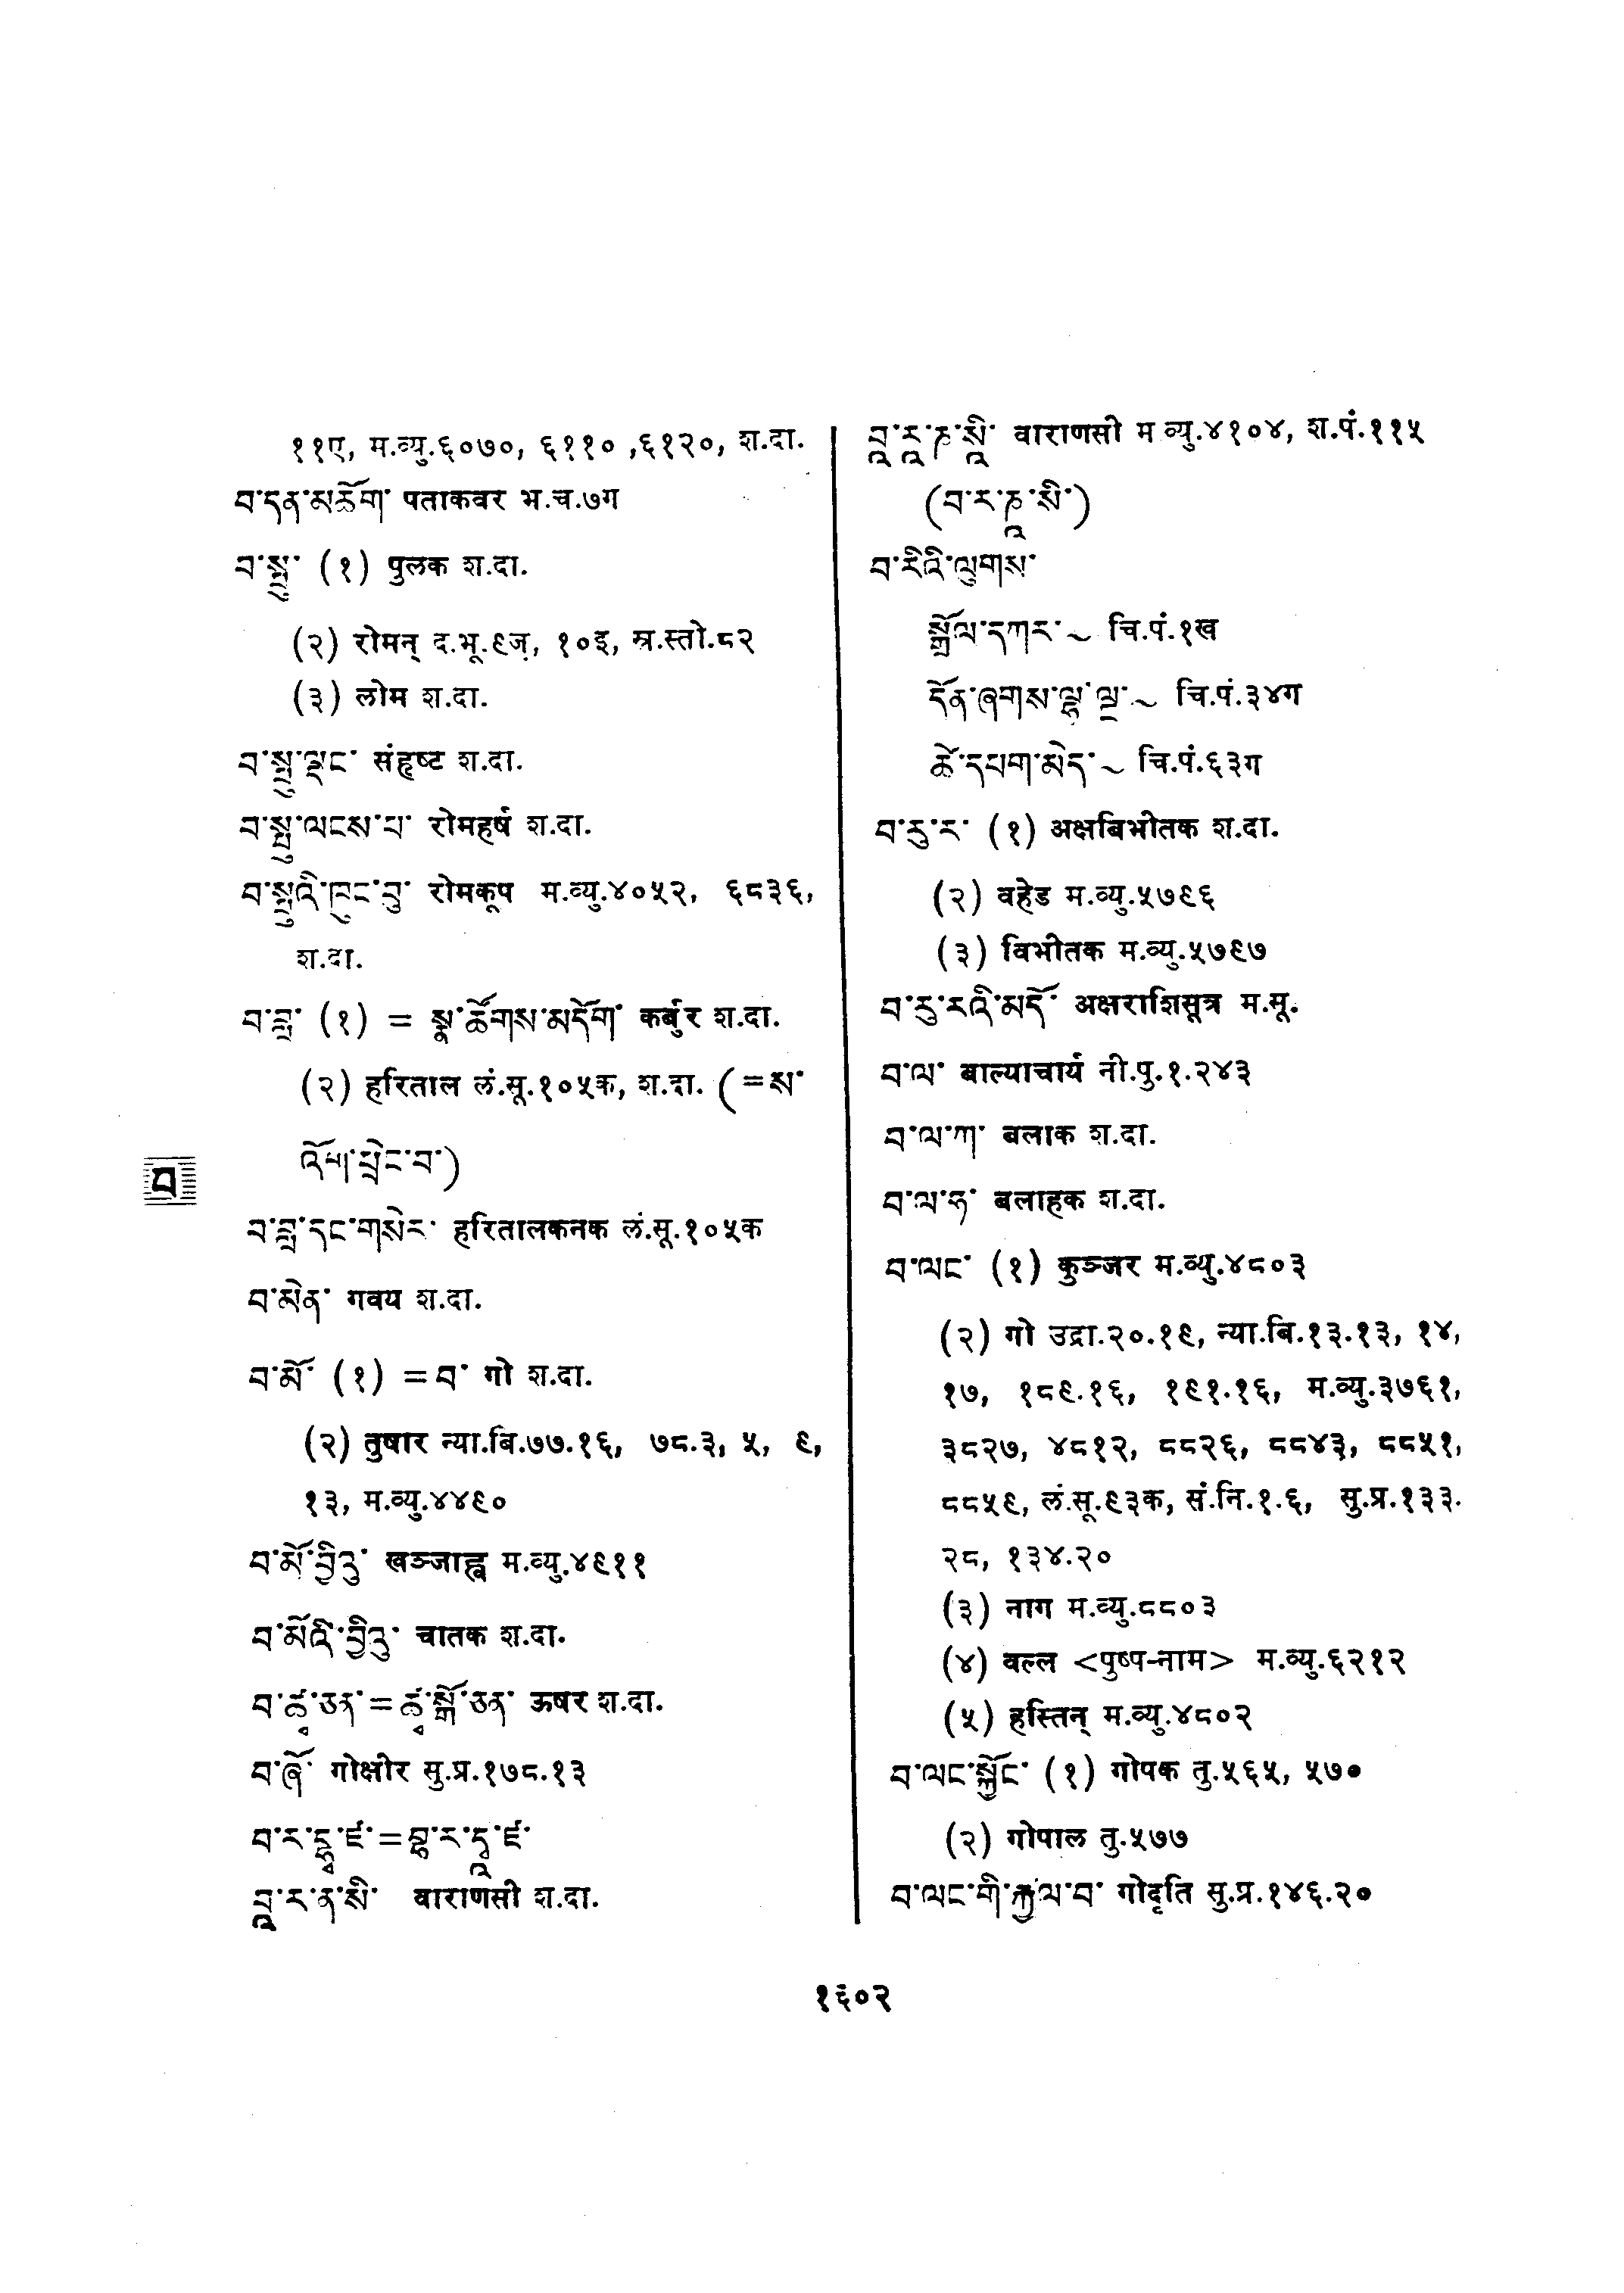 ११ए, म.व्यु.६०७०, ६११० ,६१२०, श.दा.
བ་དན་མཆོག་ पताकवर भ.च.७ग
བ་སྤུ་ (१) पुलक श.दा.
(२) रोमन् द.भू.९ज्, १०इ, स्र.स्तो.८२
(३) लोम श.दा.
བ་སྤུ་ལྡང་ संहृष्ट श.दा.
བ་སྤུ་ལངས་པ་ रोमहर्ष श.दा.
བ་སྤུའི་ཁུང་བུ་ रोमकूप म.व्यु.४०५२, ६८३६,
श.दा.
བ་བླ་ (१) = སྣ་ཚོགས་མདོག་ कर्बुर श.दा.
(२) हरिताल लं.सू.१०५क, श.दा. (=ས་
འོག་ཕྲེང་བ་)
བ
བ་བླ་དང་གསེར་ हरितालकनक लं.सू.१०५क
བ་མེན་ गवय श.दा.
བ་མོ་ (१) =བ་ गो श.दा.
(२) तुषार न्या.बि.७७.१६, ७८.३, ५, ९,
१३, म.व्यु.४४९०
བ་མོ་བྱིའུ་ खञ्जाह्व म.व्यु.४९११
བ་མོའི་བྱིའུ་ चातक श.दा.
བ་ཚྭ་ཅན་=ཚྭ་སྒོ་ཅན་ ऊषर श.दा.
བ་ཞོ་ गोक्षीर सु.प्र.१७८.१३
བ་ར་དྷྭ་ཛ་=བྷ་ར་དྭཱ་ཛ་
བཱ་ར་ན་སི་ वाराणसी श.दा.
བཱ་རཱ་ཎ་སཱི་ वाराणसी म व्यु.४१०४, श.पं.११५
(བ་ར་ཎཱ་སི་)
བ་རིའི་ལུགས་
སྒྲོལ་དཀར་~ चि.पं.१ख
དོན་ཞགས་ལྷ་ལྔ་~ चि.पं.३४ग
ཚེ་དཔག་མེད་~ चि.पं.६३ग
བ་རུ་ར་ (१) अक्षबिभीतक श.दा.
(२) वहेड म.व्यु.५७९६
(३) विभीतक म.व्यु.५७९७
བ་རུ་རའི་མདོ་ अक्षराशिसूत्र म.सू.
བ་ལ་ बाल्याचार्य नी.पु.१.२४३
བ་ལ་ཀ་ बलाक श.दा.
བ་ལ་ཧ་ बलाहक श.दा.
བ་ལང་ (१) कुञ्जर म.व्यु.४८०३
(२) गो उद्रा.२०.१९, न्या.बि.१३.१३, १४,
१७, १८९.१६, १९१.१६, म.व्यु.३७६१,
३८२७, ४८१२, ८८२६, ८८४३, ८८५१,
८८५९, लं.सू.९३क, सं.नि.१.६, सु.प्र.१३३.
२८, १३४.२०
(३) नाग म.व्यु.८८०३
(४) वल्ल <पुष्प-नाम> म.व्यु.६२१२
(५) हस्तिन् म.व्यु.४८०२
བ་ལང་སྐྱོང་ (१) गोपक तु.५६५, ५७०
(२) गोपाल तु.५७७
བ་ལང་གི་རྐྱལ་བ་ गोदृति सु.प्र.१४६.२०
१६०२